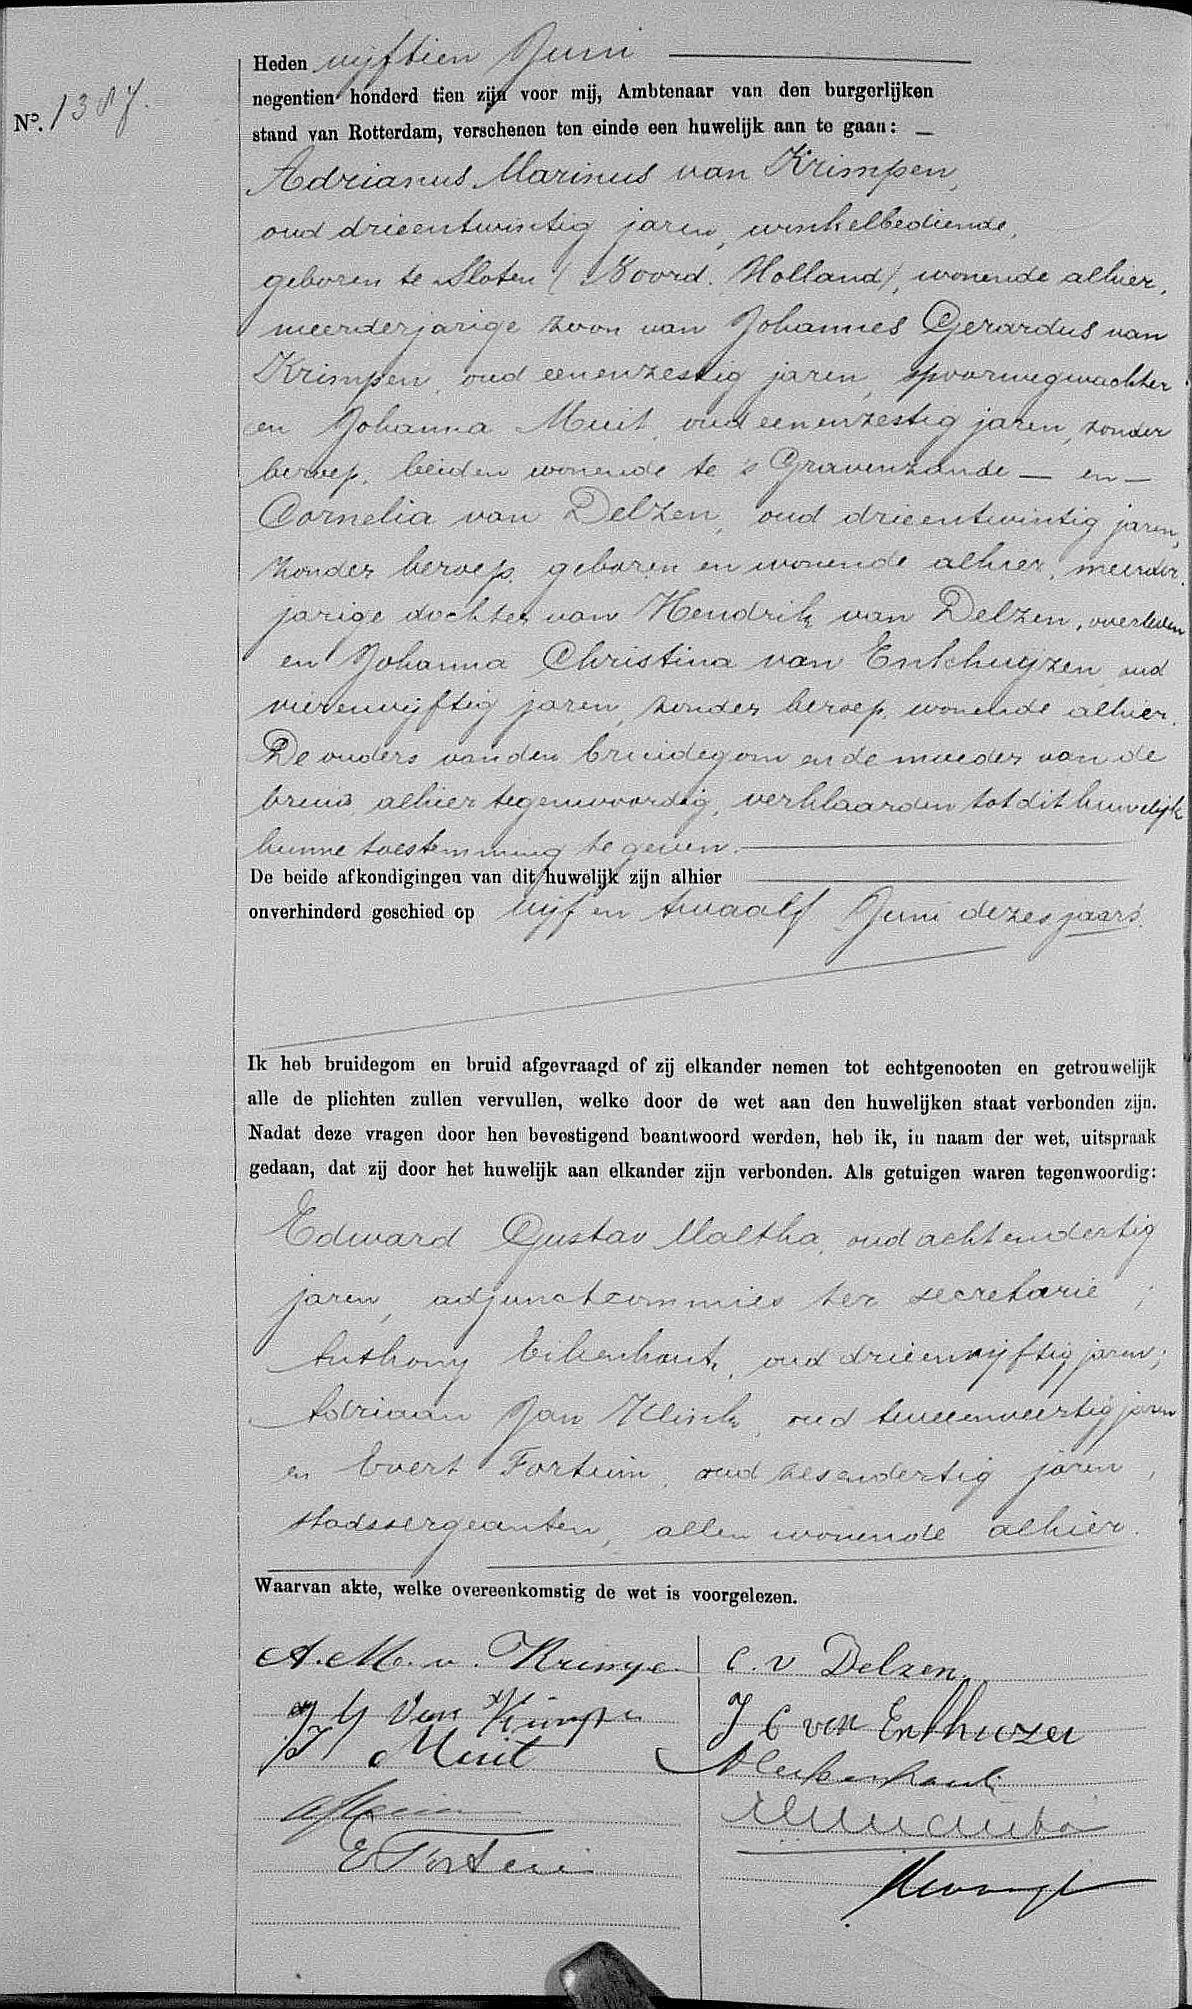 Heden vijftien Juni
No. 1387.
negentien honderd tien zijn voor mij, Ambtenaar van den burgerlijken
stand van Rotterdam, verschenen ten einde een huwelijk aan te gaan:
Adrianus Marinus van Krimpen,
oud drieentwintig jaren, winkelbediende,
geboren te Sloten (Noord. Holland), wonende alhier,
meerderjarige zoon van Johannes Gerardus van
Krimpen, oud eenenzestig jaren, spoorwegwachter
en Johanna Muit, oud eenenzestig jaren, zonder
beroep, beiden wonende te 's Gravenzande — en —
Cornelia van Delzen, oud drieentwintig jaren,
zonder beroep, geboren en wonende alhier, meerder-
jarige dochter van Hendrik van Delzen, overleden
en Johanna Christina van Enkhuijzen, oud
vierenvijftig jaren, zonder beroep, wonende alhier.
De ouders van den bruidegom en de moeder van de
bruid alhier tegenwoordig, verklaarden tot dit huwelijk
hunne toestemming te geven.
De beide afkondigingen van dit huwelijk zijn alhier
onverhinderd geschied op vijf en twaalf Juni dezes jaars.
Ik heb bruidegom en bruid afgevraagd of zij elkander nemen tot echtgenooten en getrouwelijk
alle de plichten zullen vervullen, welke door de wet aan den huwelijken staat verbonden zijn.
Nadat deze vragen door hen bevestigend beantwoord werden, heb ik, in naam der wet, uitspraak
gedaan, dat zij door het huwelijk aan elkander zijn verbonden. Als getuigen waren tegenwoordig:
Edward Gustav Maltha, oud achtendertig
jaren, adjunctcommies ter secretarie;
Anthony Eikenhout, oud drieenvijftig jaren;
Adriaan Jan Klink, oud tweeenveertig jaren
en Evert Fortuin, oud zesendertig jaren,
stadssergeanten, allen wonende alhier.
Waarvan akte, welke overeenkomstig de wet is voorgelezen.
A. M. v. Krimpen
C. v Delzen.
J G Van Krimpen
J C van Enkhuzen
J Muit
A Eikenhout
E Fortuin